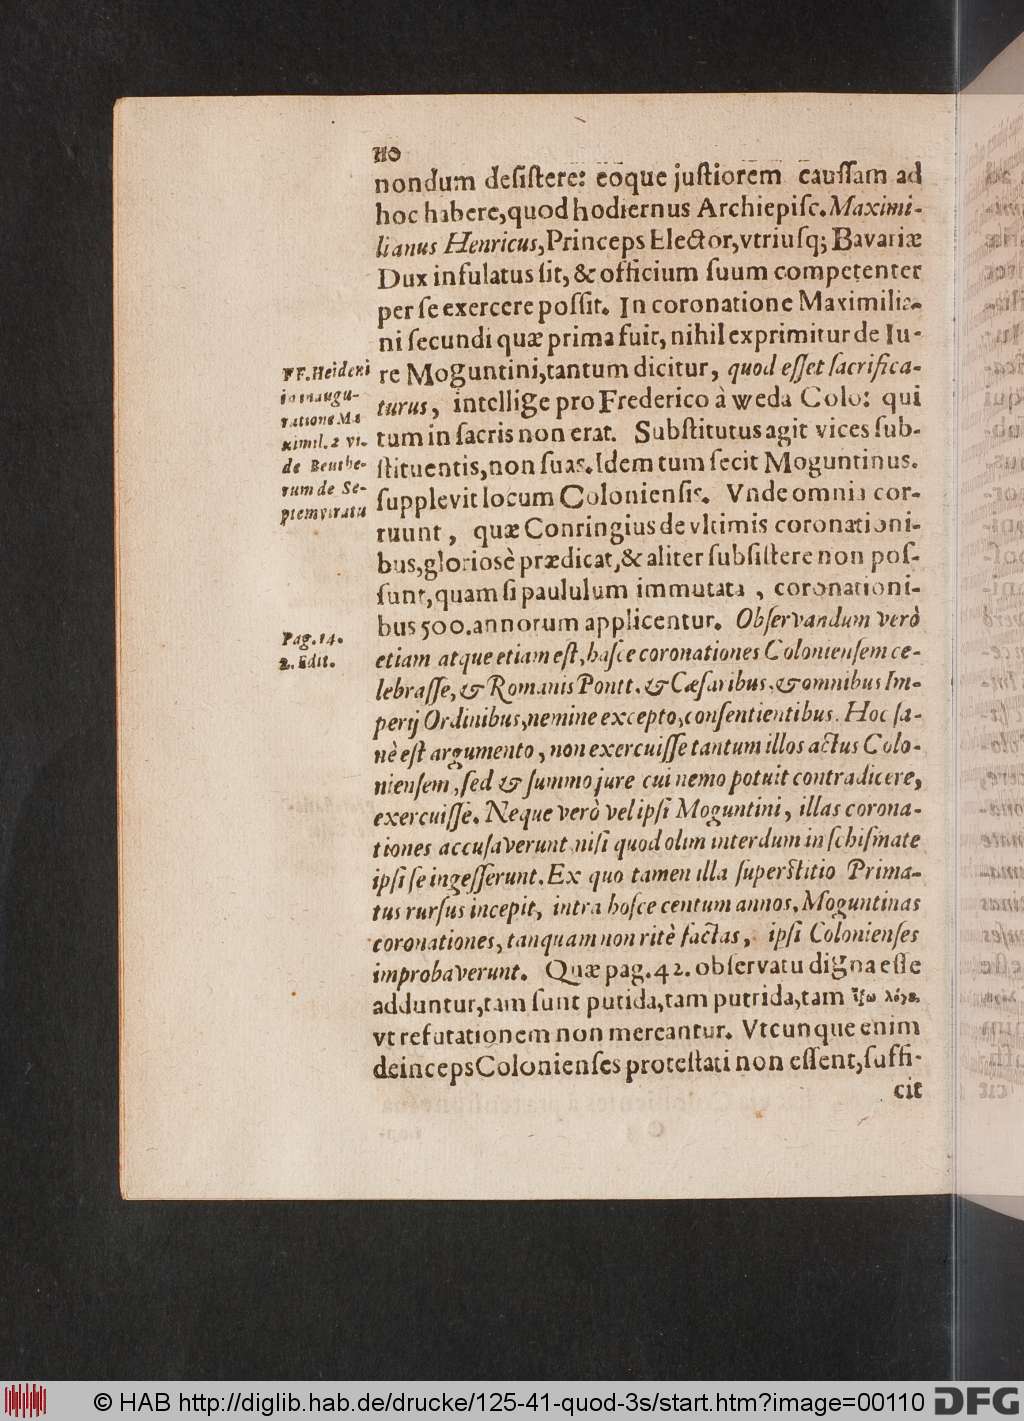 110
nondum deſiſtere: eoque juſtiorem cauſſam ad
hoc habere, quod hodiernus Archiepiſc. Maximi-
lianus Henricus, Princeps Elector, vtriuſq; Bavariæ
Dux infulatus ſit, & officium ſuum competenter
per ſe exercere poſſit. In coronatione Maximilia-
ni ſecundi quæ prima fuit, nihil exprimitur de Iu-
re Moguntini, tantum dicitur, quod eſſet ſacrifica-
turus, intellige pro Frederico à weda Colo: qui
tum in ſacris non erat. Subſtitutus agit vices ſub-
ſtituentis, non ſuas. Idem tum fecit Moguntinus.
ſupplevit locum Colonienſis. Vnde omnia cor-
ruunt, quæ Conringius de vltimis coronationi-
bus, glorioſè prædicat, & aliter ſubſiſtere non poſ-
ſunt, quam ſi paululum immutata, coronationi-
bus 500. annorum applicentur. Obſervandum verò
etiam atque etiam eſt, haſce coronationes Colonienſem ce-
lebraſſe, & Romanis Pontt. & Cæſaribus, & omnibus Im-
perij Ordinibus, nemine excepto, conſentientibus. Hoc ſa-
nè eſt argumento, non exercuiſſe tantum illos actus Colo-
nienſem, ſed & ſummo jure cui nemo potuit contradicere,
exercuiſſe. Neque verò vel ipſi Moguntini, illas corona-
tiones accuſaverunt niſi quod olim interdum in ſchiſmate
ipſi ſe ingeſſerunt. Ex quo tamen illa ſuperſtitio Prima-
tus rurſus incepit, intra hoſce centum annos, Moguntinas
coronationes, tanquam non ritè factas, ipſi Colonienſes
improbaverunt. Quæ pag. 42. obſervatu digna eſſe
adduntur, tam ſunt putida, tam putrida, tam ἔξω λόγȣ,
vt refutationem non mereantur. Vtcunque enim
deinceps Colonienſes proteſtati non eſſent, ſuffi-
cit
FF. Heideni
in inaugu-
ratione Ma
ximil. 2 vi-
de Beuthe-
rum de Se-
ptemviratu
Pag. 14.
2. Edit.
© HAB http://diglib.hab.de/drucke/125-41-quod-3s/start.htm?image=00110
DFG